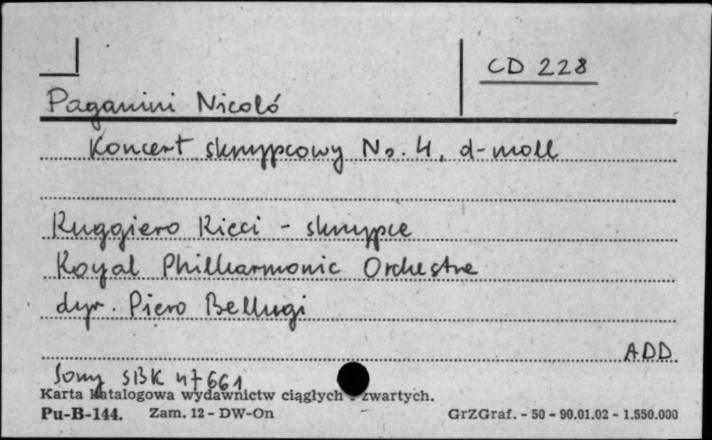 CD 228
Paganini Nicoló
Koncert skrzypcowy No. 4, d-moll
Ruggiero Ricci - skrzypce
Royal Philharmonic Orchestre
dyr. Piero Bellugi
ADD
Sony SBK 47661
Karta katalogowa wydawnictw ciągłych - zwartych.
Pu-B-144. Zam. 12 - DW-On GrZGraf. - 50 - 90.01.02 - 1.550.000